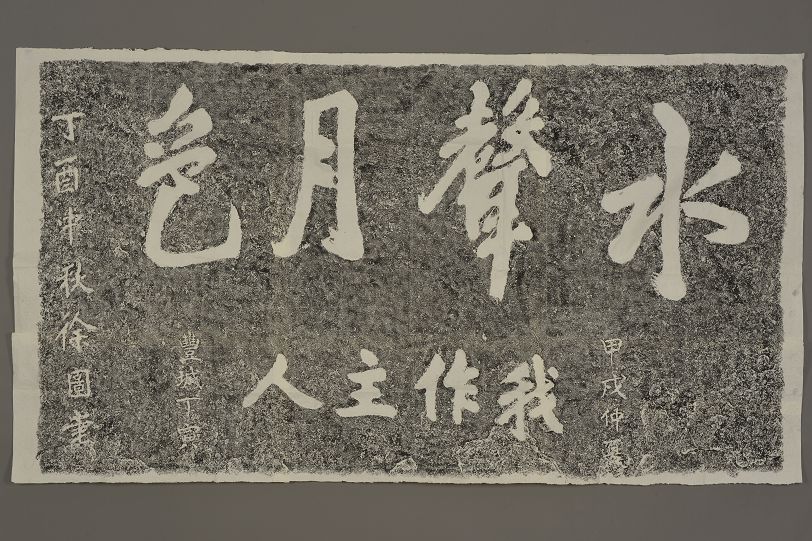 水聲月色
丁酉年秋徐圖書
甲戌仲夏
我作主人
豐城丁寧